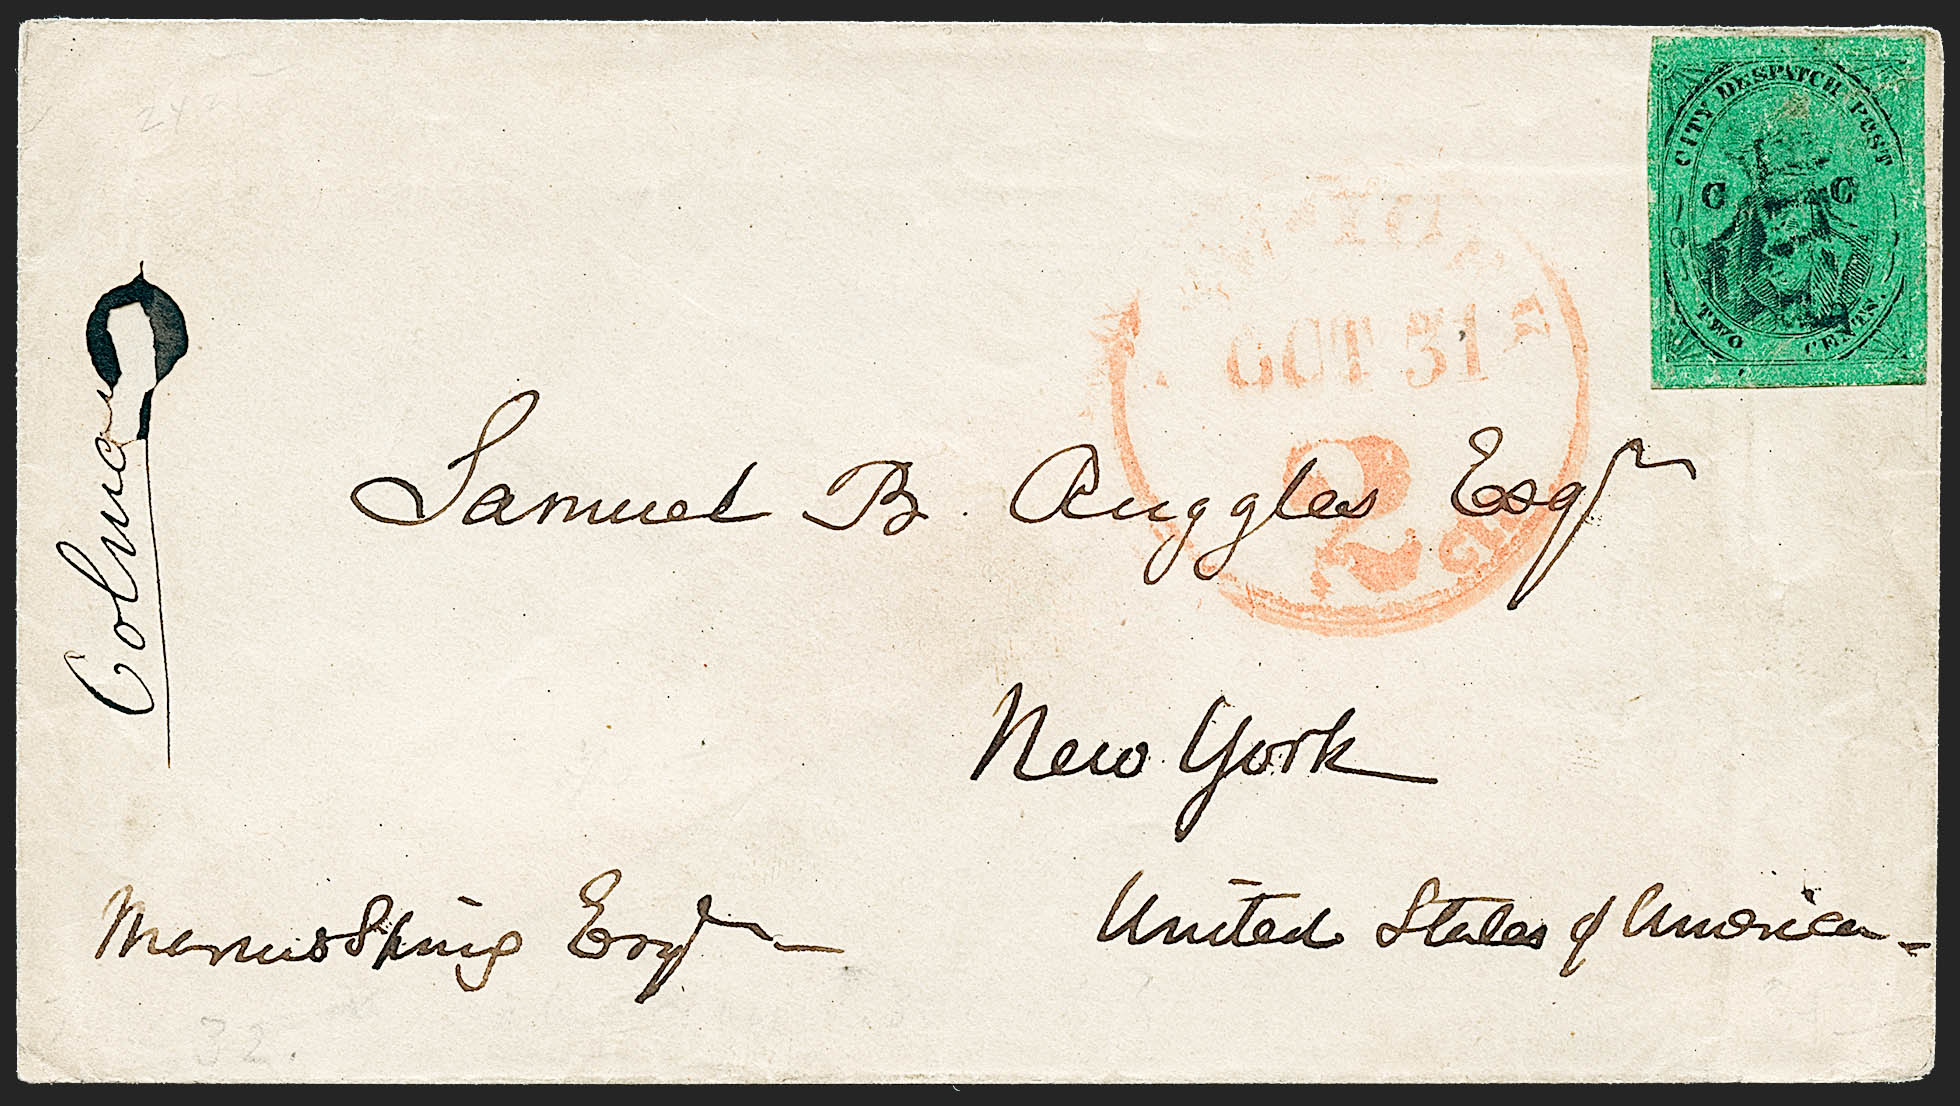 CITY DESPATCH POST
C C
TWO CENTS.
OCT 31
2
Samuel B. Ruggles Esqr
New York
United States of America
Marcus Spring Esqr
32.
24